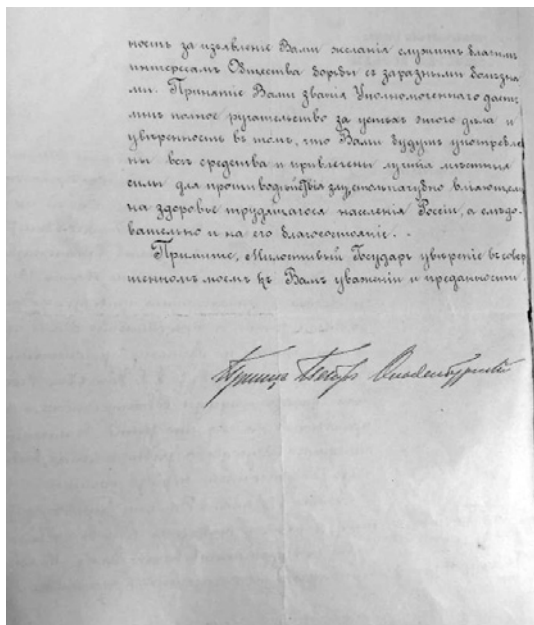 ность за изъявленіе Вами желанія служить благимъ
интересамъ Общества борьбы съ заразными болѣзня-
ми. Принятіе Вами званія Уполномоченнаго даетъ
мнѣ полное ручательство за успѣхъ этого дѣла и
увѣренность въ томъ, что Вами будутъ употребле-
ны всѣ средства и привлечены лучшія мѣстныя
силы для противодѣйствія злу, столь пагубно вліяющему
на здоровье трудящагося населенія Россіи, а слѣдо-
вательно и на его благосостояніе.
Примите, Милостивый Государь увѣреніе въ совер-
шенномъ моемъ къ Вамъ уваженіи и преданности.
Принцъ Петръ Ольденбургскій